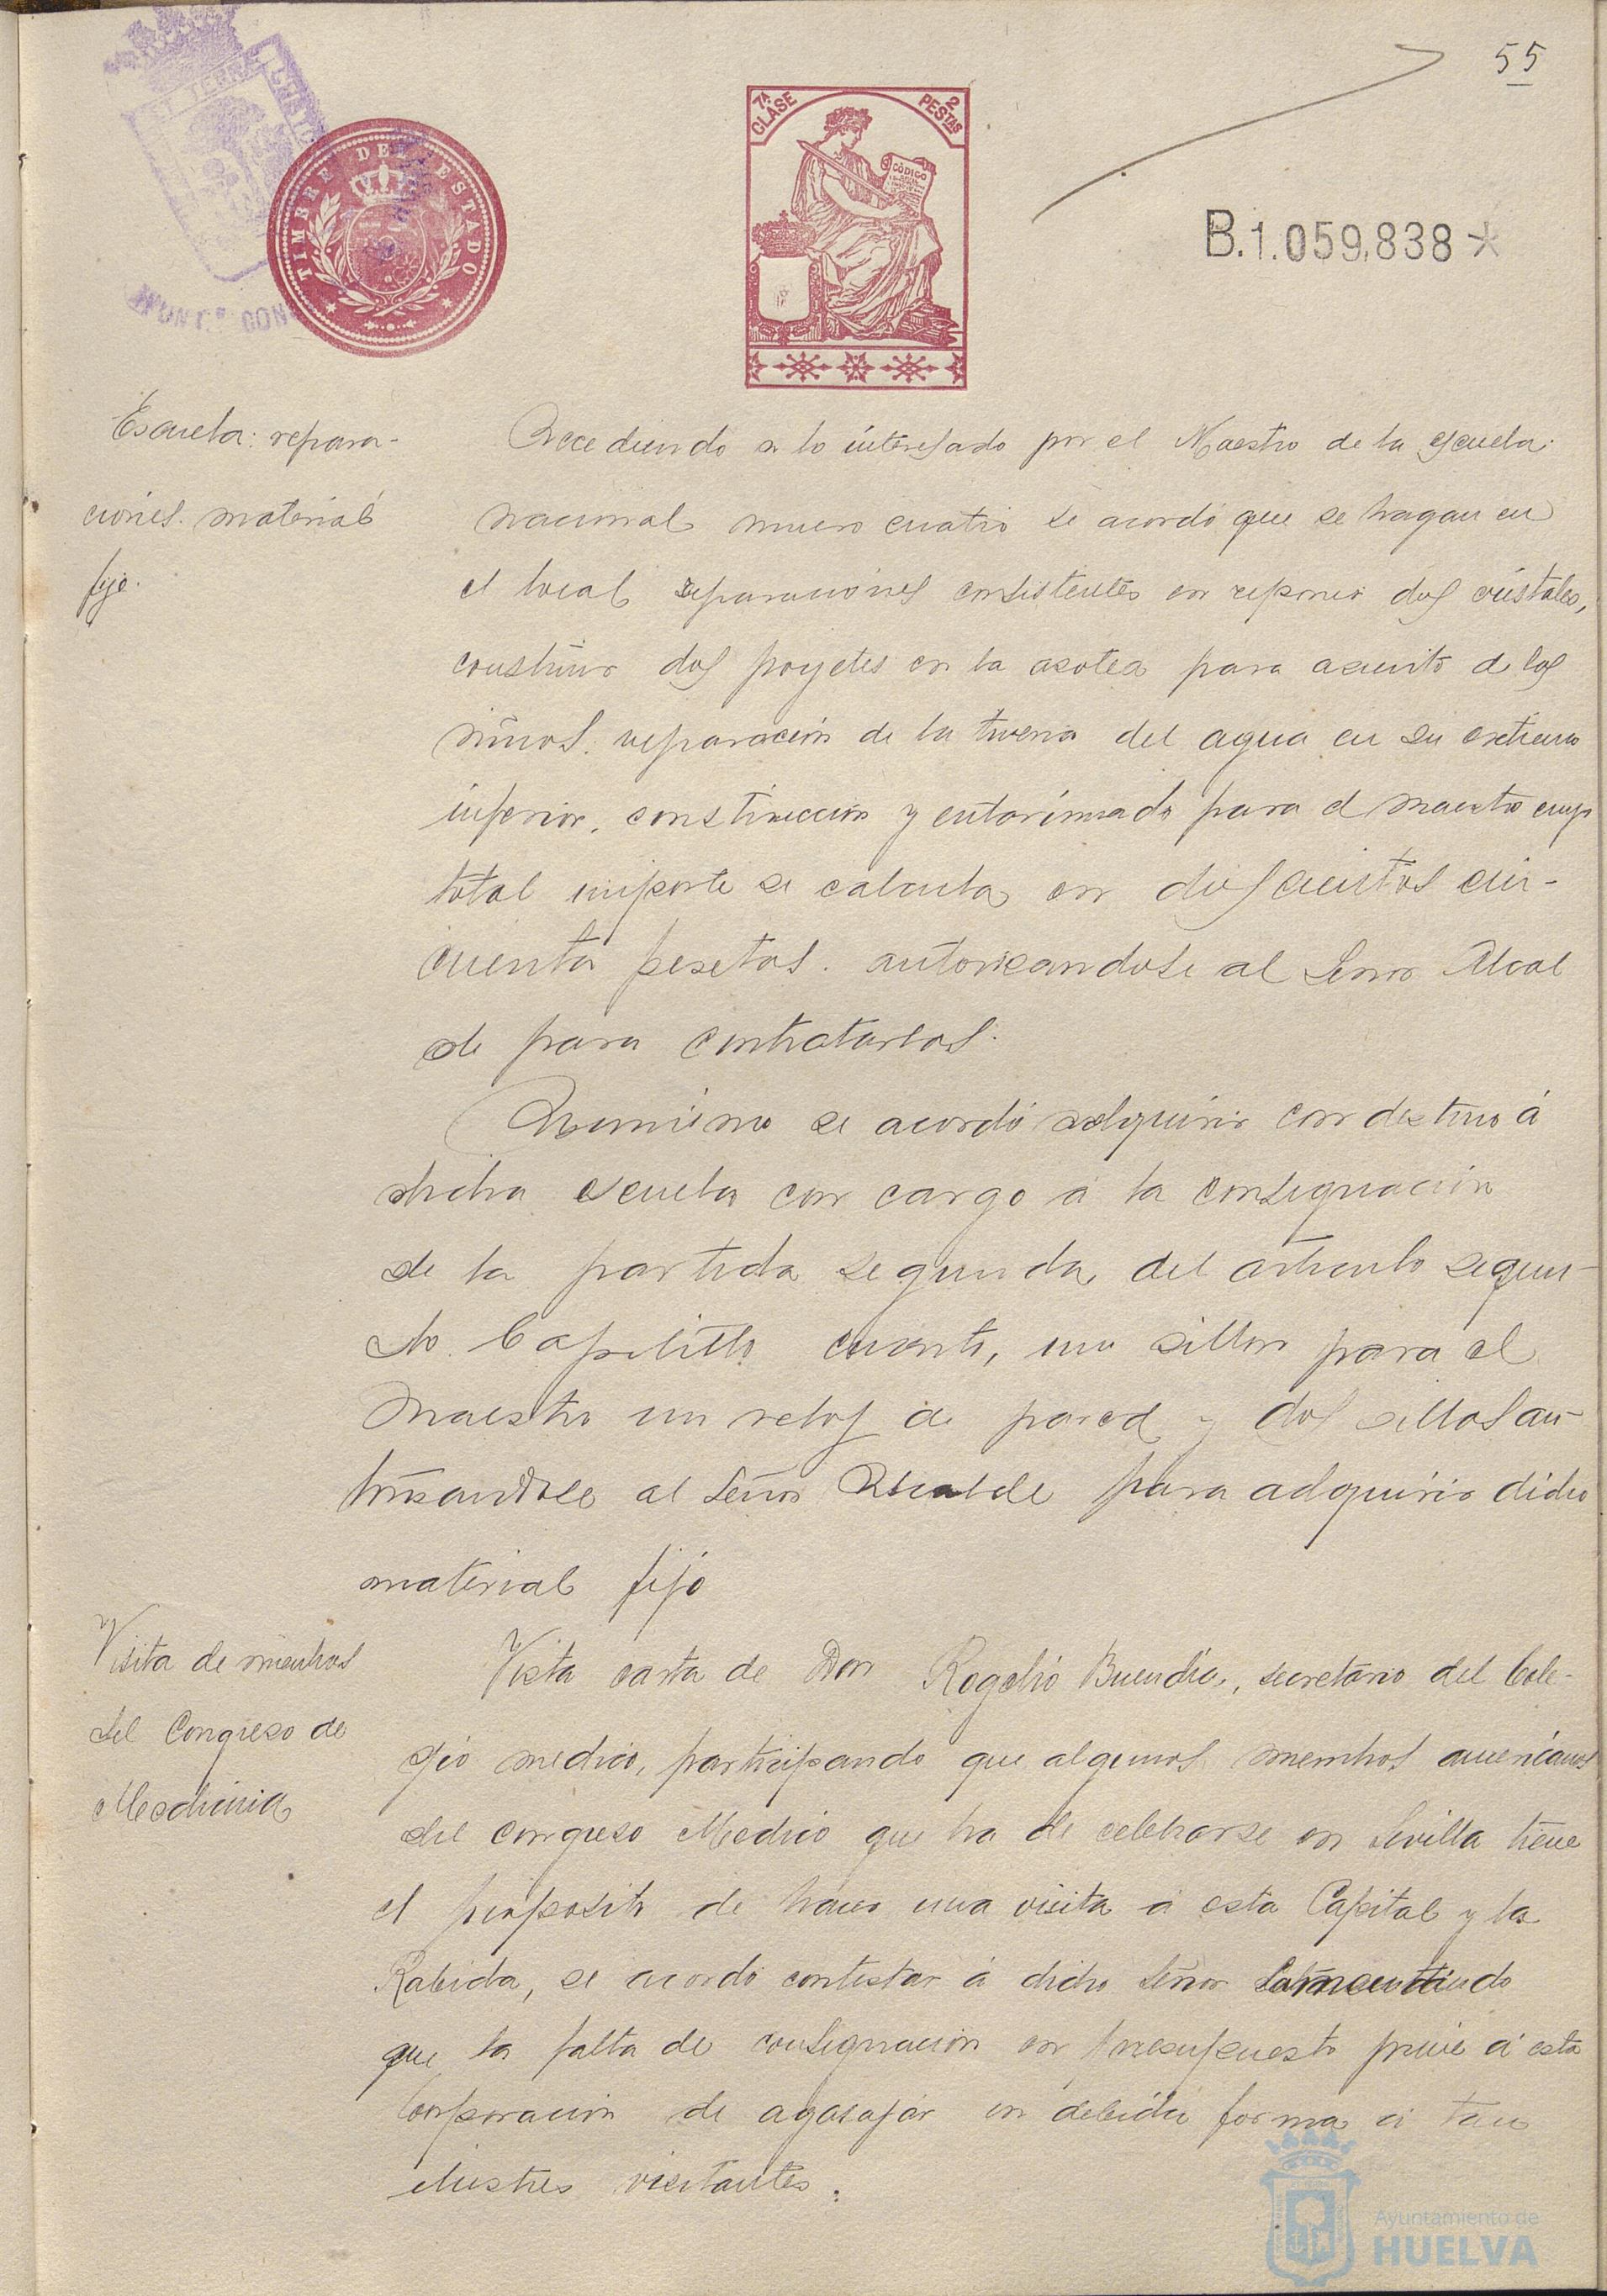 55
7ª CLASE
2 PESTAS
CÓDIGO
TIMBRE DEL ESTADO
B.1.059.838*
Escuela: repara-
ciones. material
fijo.
Accediendo a lo interesado por el Maestro de la escuela
nacional numero cuatro se acordó que se hagan en
el local reparaciones consistentes en reponer dos cristales,
construir dos poyetes en la azotea para asiento de los
niños, reparación de la tuveria del agua en su extremo
inferior, construccion y entarimado para el maestro cuyo
total importe se calcula en doscientos cin-
cuenta pesetas. autorizandose al Señor Alcal
de para contratarlos.
Asimismo se acordó adquirir con destino á
dicha escuela con cargo á la consignación
de la partida segunda, del articulo segun-
do. Capitulo cuarto, un sillon para el
maestro un reloj de pared y dos sillas au-
torizandose al Señor Alcalde para adquirir dicho
material fijo
Visita de miembros
del Congreso de
Medicina
Vista carta de Don Rogelio Buendia, secretario del Cole-
gio medico, participando que algunos miembros americanos
del congreso Medico que ha de celebrarse en Sevilla tiene
el proposito de hacer una visita á esta Capital y la
Rabida, se acordó contestar á dicho Señor lamentando
que la falta de consignacion en presupuesto prive á esta
Corporacion de agasajar en debida forma á tan
ilustres visitantes.
Ayuntamiento de
HUELVA